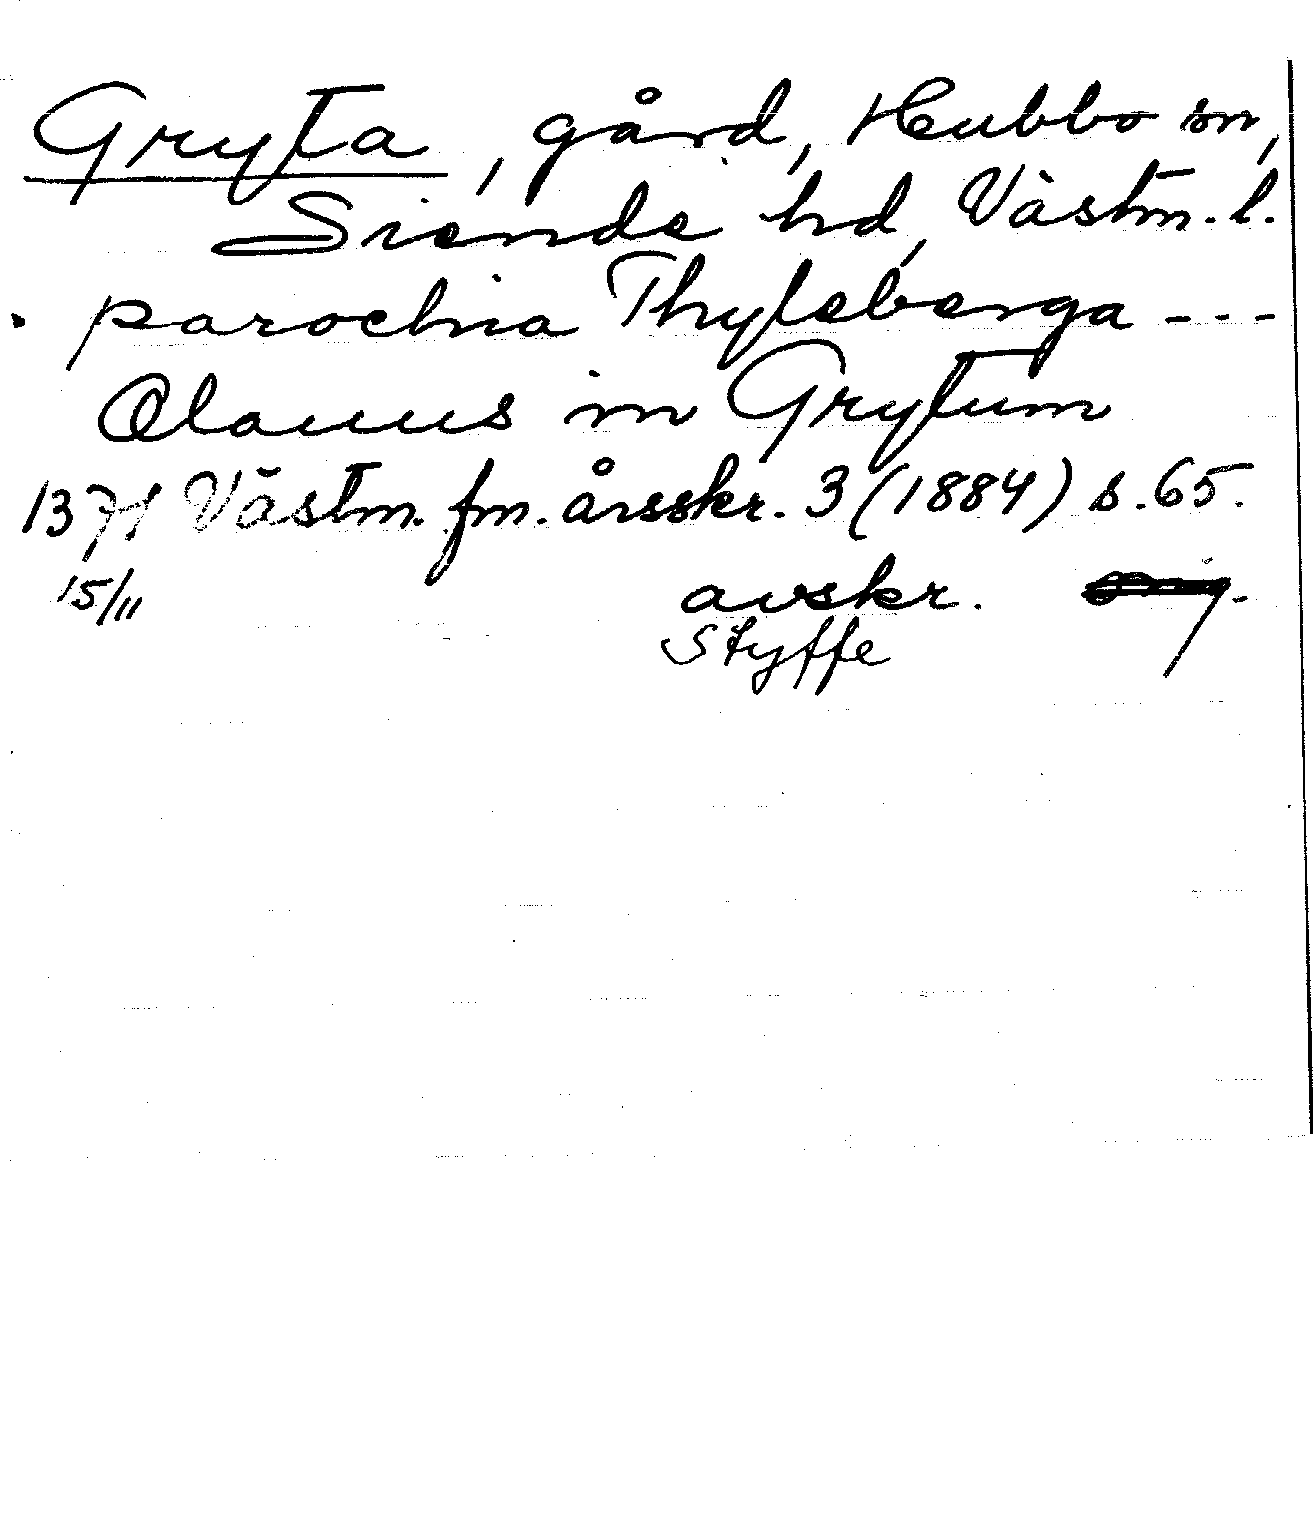 Gryta, gård, Hubbo sn,
Siende hd, Västm. l.
parochia Thyleberga ---
Olauus in Grytum
1371 Västm. fm. årsskr. 3 (1884) s. 65.
15/11 avskr.
Styffe